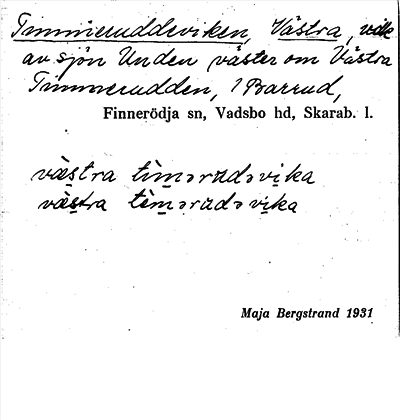 Timmeruddeviken, Västra, vik
av sjön Unden väster om Västra
Timmerudden, 1 Barrud,
Finnerödja sn, Vadsbo hd, Skarab. l.
västra tìmərudəvika
västra tìmərudəvika
Maja Bergstrand 1931